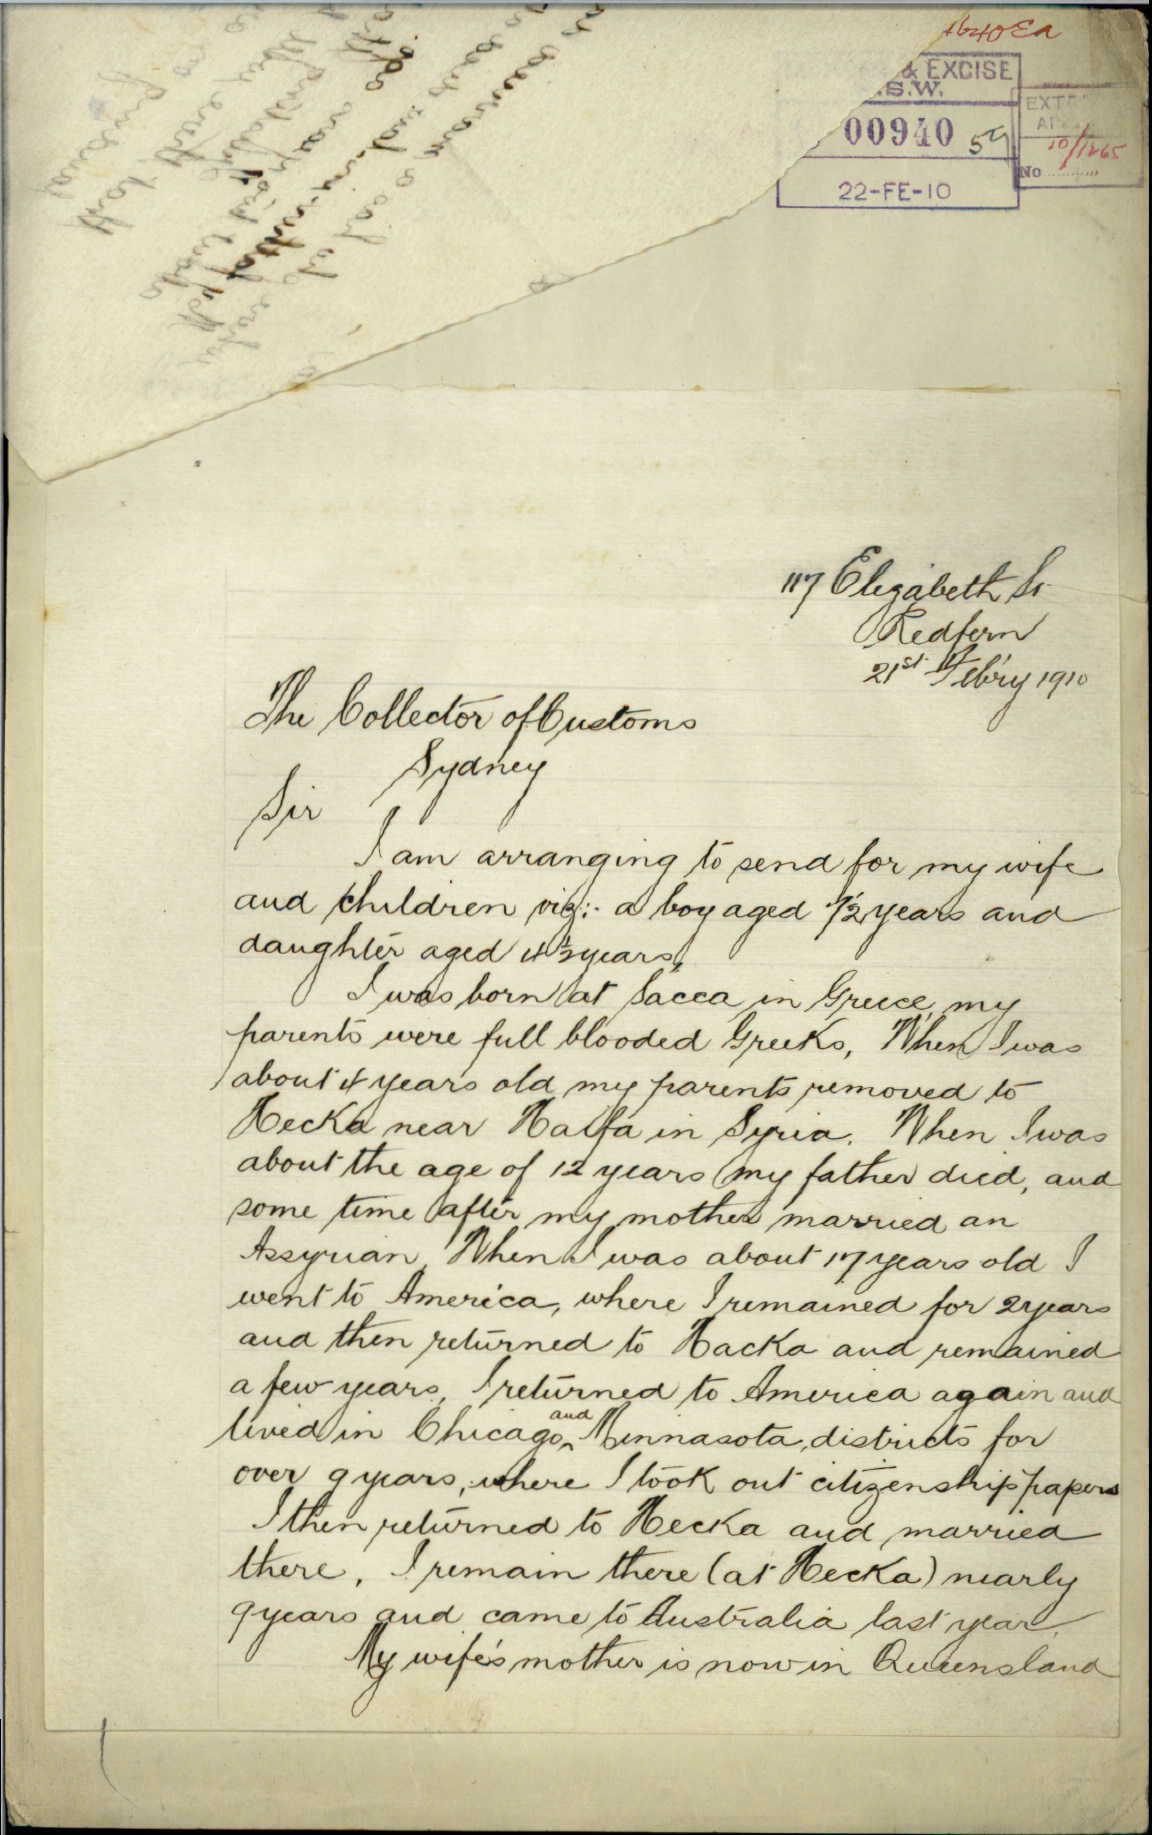 1640 Ea
& EXCISE
.S.W.
00940
22-FE-10
10/1265
No
117 Elizabeth St
Redfern
21st Feb'ry 1910
The Collector of Customs
Sydney
Sir
I am arranging to send for my wife
and children viz:- a boy aged 7½ years and
daughter aged 4½ years,
I was born at Sacca in Greece, my
parents were full blooded Greeks, When I was
about 4 years old my parents removed to
Hecka near Haifa in Syria. When I was
about the age of 12 years my father died, and
some time after my mother married an
Assyrian, When I was about 17 years old I
went to America, where I remained for 2 years
and then returned to Hacka and remained
a few years, I returned to America again and
lived in Chicago, and Minnasota, districts for
over 9 years, where I took out citizenship papers
I then returned to Hecka and married
there. I remain there (at Hecka) nearly
9 years and came to Australia last year.
My wife's mother is now in Queensland